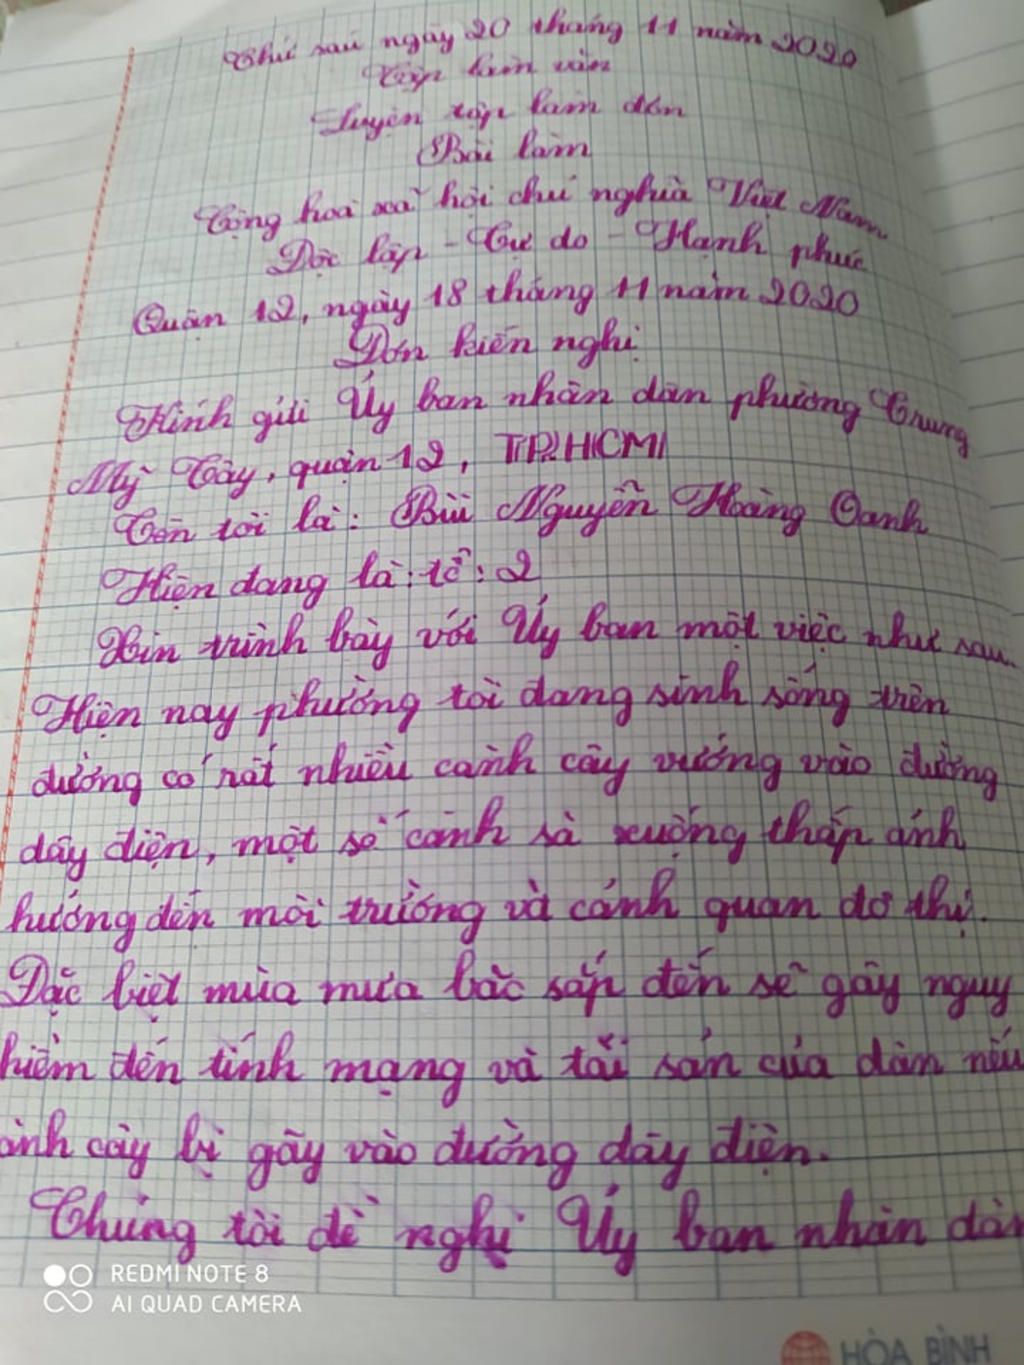 Thứ sáu ngày 20 tháng 11 năm 2020
Tập làm văn
Luyện tập làm đơn
Bài làm
Cộng hoà xã hội chủ nghĩa Việt Nam
Độc lập - Tự do - Hạnh phúc
Quận 12, ngày 18 tháng 11 năm 2020
Đơn kiến nghị
Kính gửi Ủy ban nhân dân phường Trung
Mỹ Tây, quận 12, TP.HCM
Tên tôi là: Bùi Nguyễn Hoàng Oanh
Hiện đang là: tổ: 2
Xin trình bày với Ủy ban một việc như sau.
Hiện nay phường tôi đang sinh sống trên
đường có rất nhiều cành cây vướng vào đường
dây điện, một số cành sà xuống thấp ảnh
hưởng đến môi trường và cảnh quan đô thị.
Đặc biệt mùa mưa bão sắp đến sẽ gây nguy
hiểm đến tính mạng và tài sản của dân nếu
ành cây bị gãy vào đường dây điện.
Chúng tôi đề nghị Ủy ban nhân dân
REDMI NOTE 8
AI QUAD CAMERA
HÒA BÌNH